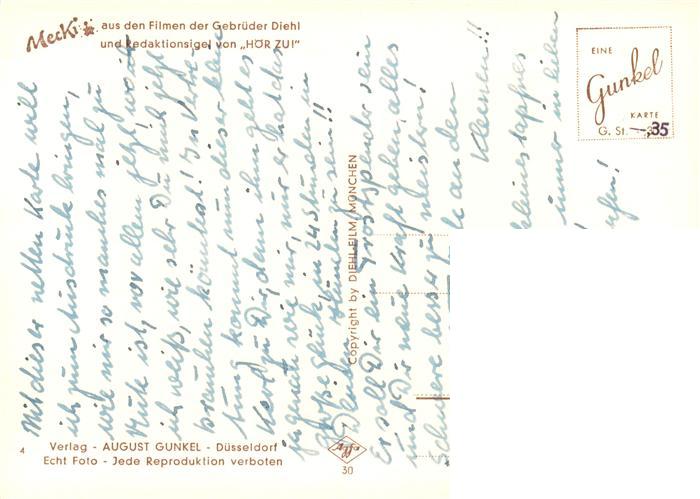 Mecki
aus den Filmen der Gebrüder Diehl
und Redaktionsigel von „HÖR ZU!"
EINE
Gunkel
KARTE
G. St. —,35
Mit dieser netten Karte will
ich zum Ausdruck bringen,
wie mir so manches mal zu
Mute ist, vor allem jetzt, wo
ich weiß, wie sehr Du mich jetzt
brauchen könntest! In Vertre-
tung kommt nun dieser kleine
Kerl zu Dir, denn ihm geht es
genau wie mir, nur er hat das
große Glück in 24 Stunden in
zu sein!!
Er soll Dir ein Trostspender sein
und Dir neue Kraft geben, alles
schwere besser zu meistern!
an den
Kleinen!!
immer in lieben
Copyright by DIEHL-FILM, MÜNCHEN
4
Verlag - AUGUST GUNKEL - Düsseldorf
Echt Foto - Jede Reproduktion verboten
Agfa
30